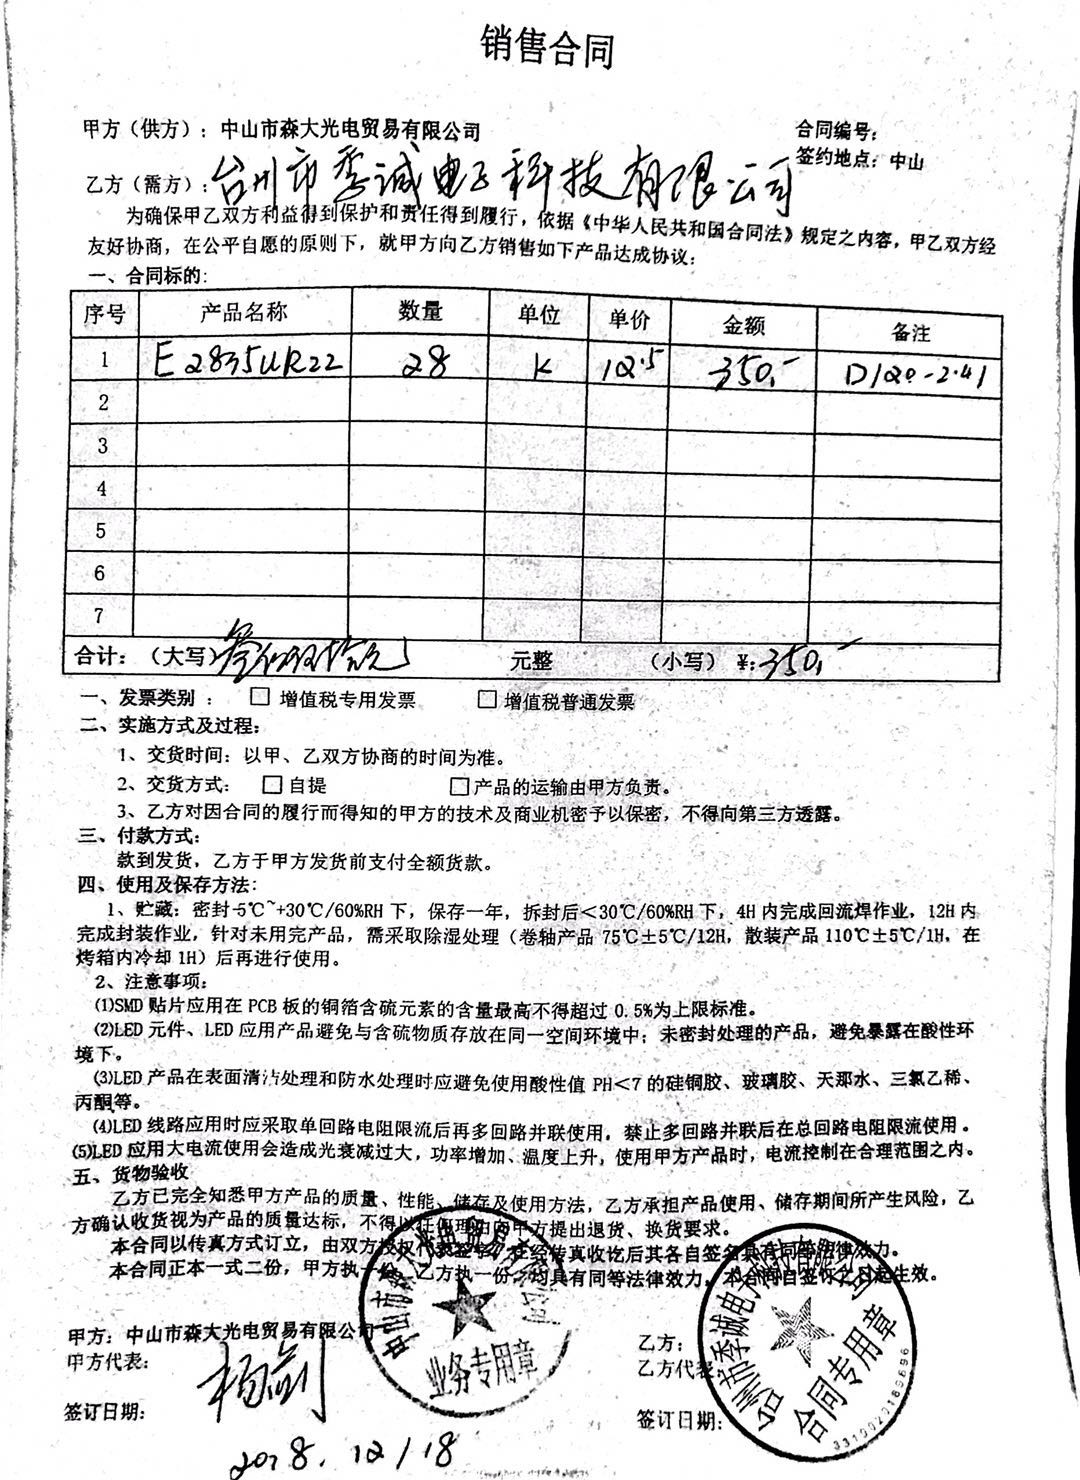 销售合同
甲方（供方）：中山市森大光电贸易有限公司
合同编号：
签约地点：中山
乙方（需方）：台州市季诚电子科技有限公司
为确保甲乙双方利益得到保护和责任得到履行，依据《中华人民共和国合同法》规定之内容，甲乙双方经
友好协商，在公平自愿的原则下，就甲方向乙方销售如下产品达成协议：
一、合同标的：
序号 产品名称 数量 单位 单价 金额 备注
1 E2835UR22 28 K 12.5 350.- D120-2.41
2
3
4
5
6
7
合计：（大写）叁佰伍拾元 元整 （小写）¥:350.-
一、发票类别： □ 增值税专用发票 □ 增值税普通发票
二、实施方式及过程：
1、交货时间：以甲、乙双方协商的时间为准。
2、交货方式： □自提 □产品的运输由甲方负责。
3、乙方对因合同的履行而得知的甲方的技术及商业机密予以保密，不得向第三方透露。
三、付款方式：
款到发货，乙方于甲方发货前支付全额货款。
四、使用及保存方法：
1、贮藏：密封-5℃~+30℃/60%RH下，保存一年，拆封后＜30℃/60%RH下，4H内完成回流焊作业，12H内
完成封装作业，针对未用完产品，需采取除湿处理（卷轴产品 75℃±5℃/12H，散装产品110℃±5℃/1H，在
烤箱内冷却1H）后再进行使用。
2、注意事项：
(1)SMD贴片应用在PCB板的铜箔含硫元素的含量最高不得超过 0.5%为上限标准。
(2)LED元件、LED应用产品避免与含硫物质存放在同一空间环境中；未密封处理的产品，避免暴露在酸性环
境下。
(3)LED产品在表面清洁处理和防水处理时应避免使用酸性值 PH＜7的硅铜胶、玻璃胶、天那水、三氯乙稀、
丙酮等。
(4)LED线路应用时应采取单回路电阻限流后再多回路并联使用，禁止多回路并联后在总回路电阻限流使用。
(5)LED应用大电流使用会造成光衰减过大，功率增加、温度上升，使用甲方产品时，电流控制在合理范围之内。
五、货物验收
乙方已完全知悉甲方产品的质量、性能、储存及使用方法，乙方承担产品使用、储存期间所产生风险，乙
方确认收货视为产品的质量达标，不得以任何理由向甲方提出退货、换货要求。
本合同以传真方式订立，由双方授权代表签字，在经传真收讫后其各自签名具有同等法律效力。
本合同正本一式二份，甲方执一份，乙方执一份，均具有同等法律效力，本合同自签订之日起生效。
甲方：中山市森大光电贸易有限公司
甲方代表：
签订日期：
2018.12/18
中山市森大光电贸易有限公司
业务专用章
乙方：
乙方代表：
签订日期：
台州市季诚电子科技有限公司
合同专用章